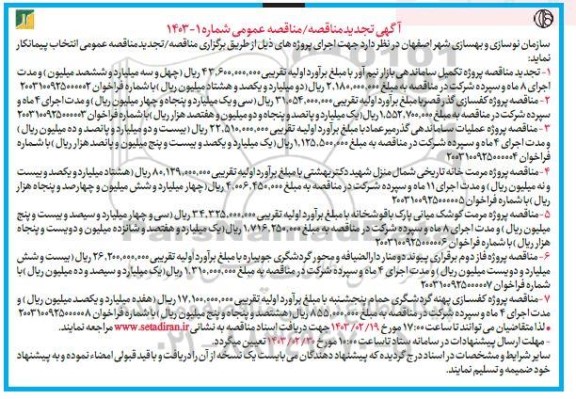 آگهی تجدیدمناقصه/مناقصه عمومی شماره ۱-۱۴۰۳
سازمان نوسازی و بهسازی شهر اصفهان در نظر دارد جهت اجرای پروژه های ذیل از طریق برگزاری مناقصه/تجدیدمناقصه عمومی انتخاب پیمانکار
نماید:
۱- تجدید مناقصه پروژه تکمیل ساماندهی بازار نیم آور با مبلغ برآورد اولیه تقریبی ۴۳،۶۰۰،۰۰۰،۰۰۰ ریال (چهل و سه میلیارد و ششصد میلیون) و مدت
اجرای ۸ ماه و سپرده شرکت در مناقصه به مبلغ ۲،۱۸۰،۰۰۰،۰۰۰ ریال (دو میلیارد و یکصد و هشتاد میلیون ریال) با شماره فراخوان ۲۰۰۳۱۰۰۹۲۵۰۰۰۰۰۲
۲- مناقصه پروژه کفسازی گذر قصر با مبلغ برآورد اولیه تقریبی ۳۱،۰۵۴،۰۰۰،۰۰۰ ریال (سی و یک میلیارد و پنجاه و چهار میلیون ریال) و مدت اجرای ۴ ماه و
سپرده شرکت در مناقصه به مبلغ ۱،۵۵۲،۷۰۰،۰۰۰ ریال (یک میلیارد و پانصد و پنجاه و دو میلیون و هفتصد هزار ریال) با شماره فراخوان ۲۰۰۳۱۰۰۹۲۵۰۰۰۰۰۳
۳- مناقصه پروژه عملیات ساماندهی گذر میرعماد با مبلغ برآورد اولیه تقریبی ۲۲،۵۱۰،۰۰۰،۰۰۰ ریال (بیست و دو میلیارد و پانصد و ده میلیون ریال)
و مدت اجرای ۴ ماه و سپرده شرکت در مناقصه به مبلغ ۱،۱۲۵،۵۰۰،۰۰۰ ریال (یک میلیارد و یکصد و بیست و پنج میلیون و پانصد هزار ریال) با شماره
فراخوان ۲۰۰۳۱۰۰۹۲۵۰۰۰۰۰۴
۴- مناقصه پروژه مرمت خانه تاریخی شمال منزل شهید دکتر بهشتی با مبلغ برآورد اولیه تقریبی ۸۰،۱۲۹،۰۰۰،۰۰۰ ریال (هشتاد میلیارد و یکصد و بیست
و نه میلیون ریال) و مدت اجرای ۱۱ ماه و سپرده شرکت در مناقصه به مبلغ ۴،۰۰۶،۴۵۰،۰۰۰ ریال (چهار میلیارد و شش میلیون و چهارصد و پنجاه هزار
ریال) با شماره فراخوان ۲۰۰۳۱۰۰۹۲۵۰۰۰۰۰۵
۵- مناقصه پروژه مرمت کوشک میانی پارک باقوشخانه با مبلغ برآورد اولیه تقریبی ۳۴،۳۲۵،۰۰۰،۰۰۰ ریال (سی و چهار میلیارد و سیصد و بیست و پنج
میلیون ریال) و مدت اجرای ۸ ماه و سپرده شرکت در مناقصه به مبلغ ۱،۷۱۶،۲۵۰،۰۰۰ ریال (یک میلیارد و هفتصد و شانزده میلیون و دویست و پنجاه
هزار ریال) با شماره فراخوان ۲۰۰۳۱۰۰۹۲۵۰۰۰۰۰۶
۶- مناقصه پروژه فاز دوم برقراری پیوند دو منار دارالضیافه و محور گردشگری جویباره با مبلغ برآورد اولیه تقریبی ۲۶،۲۰۰،۰۰۰،۰۰۰ ریال (بیست و شش
میلیارد و دویست میلیون ریال) و مدت اجرای ۴ ماه و سپرده شرکت در مناقصه به مبلغ ۱،۳۱۰،۰۰۰،۰۰۰ ریال (یک میلیارد و سیصد و ده میلیون ریال) با
شماره فراخوان ۲۰۰۳۱۰۰۹۲۵۰۰۰۰۰۷
۷- مناقصه پروژه کفسازی پهنه گردشگری حمام پنجشنبه با مبلغ برآورد اولیه تقریبی ۱۷،۱۰۰،۰۰۰،۰۰۰ ریال (هفده میلیارد و یکصد میلیون ریال) و
مدت اجرای ۴ ماه و سپرده شرکت در مناقصه به مبلغ ۸۵۵،۰۰۰،۰۰۰ ریال (هشتصد و پنجاه و پنج میلیون ریال) با شماره فراخوان ۲۰۰۳۱۰۰۹۲۵۰۰۰۰۰۸
• لذا متقاضیان می توانند تا ساعت ۱۷:۰۰ مورخ ۱۴۰۳/۰۲/۱۹ جهت دریافت اسناد مناقصه به نشانی www.setadiran.ir مراجعه نمایند.
- مهلت ارسال پیشنهادات در سامانه ستاد تا ساعت ۱۰:۰۰ مورخ ۱۴۰۳/۰۲/۳۰ تعیین میگردد.
سایر شرایط و مشخصات در اسناد درج گردیده که پیشنهاد دهندگان می بایست یک نسخه از آن را دریافت و باقید قبولی امضاء نموده و به پیشنهاد
خود ضمیمه و تسلیم نمایند.